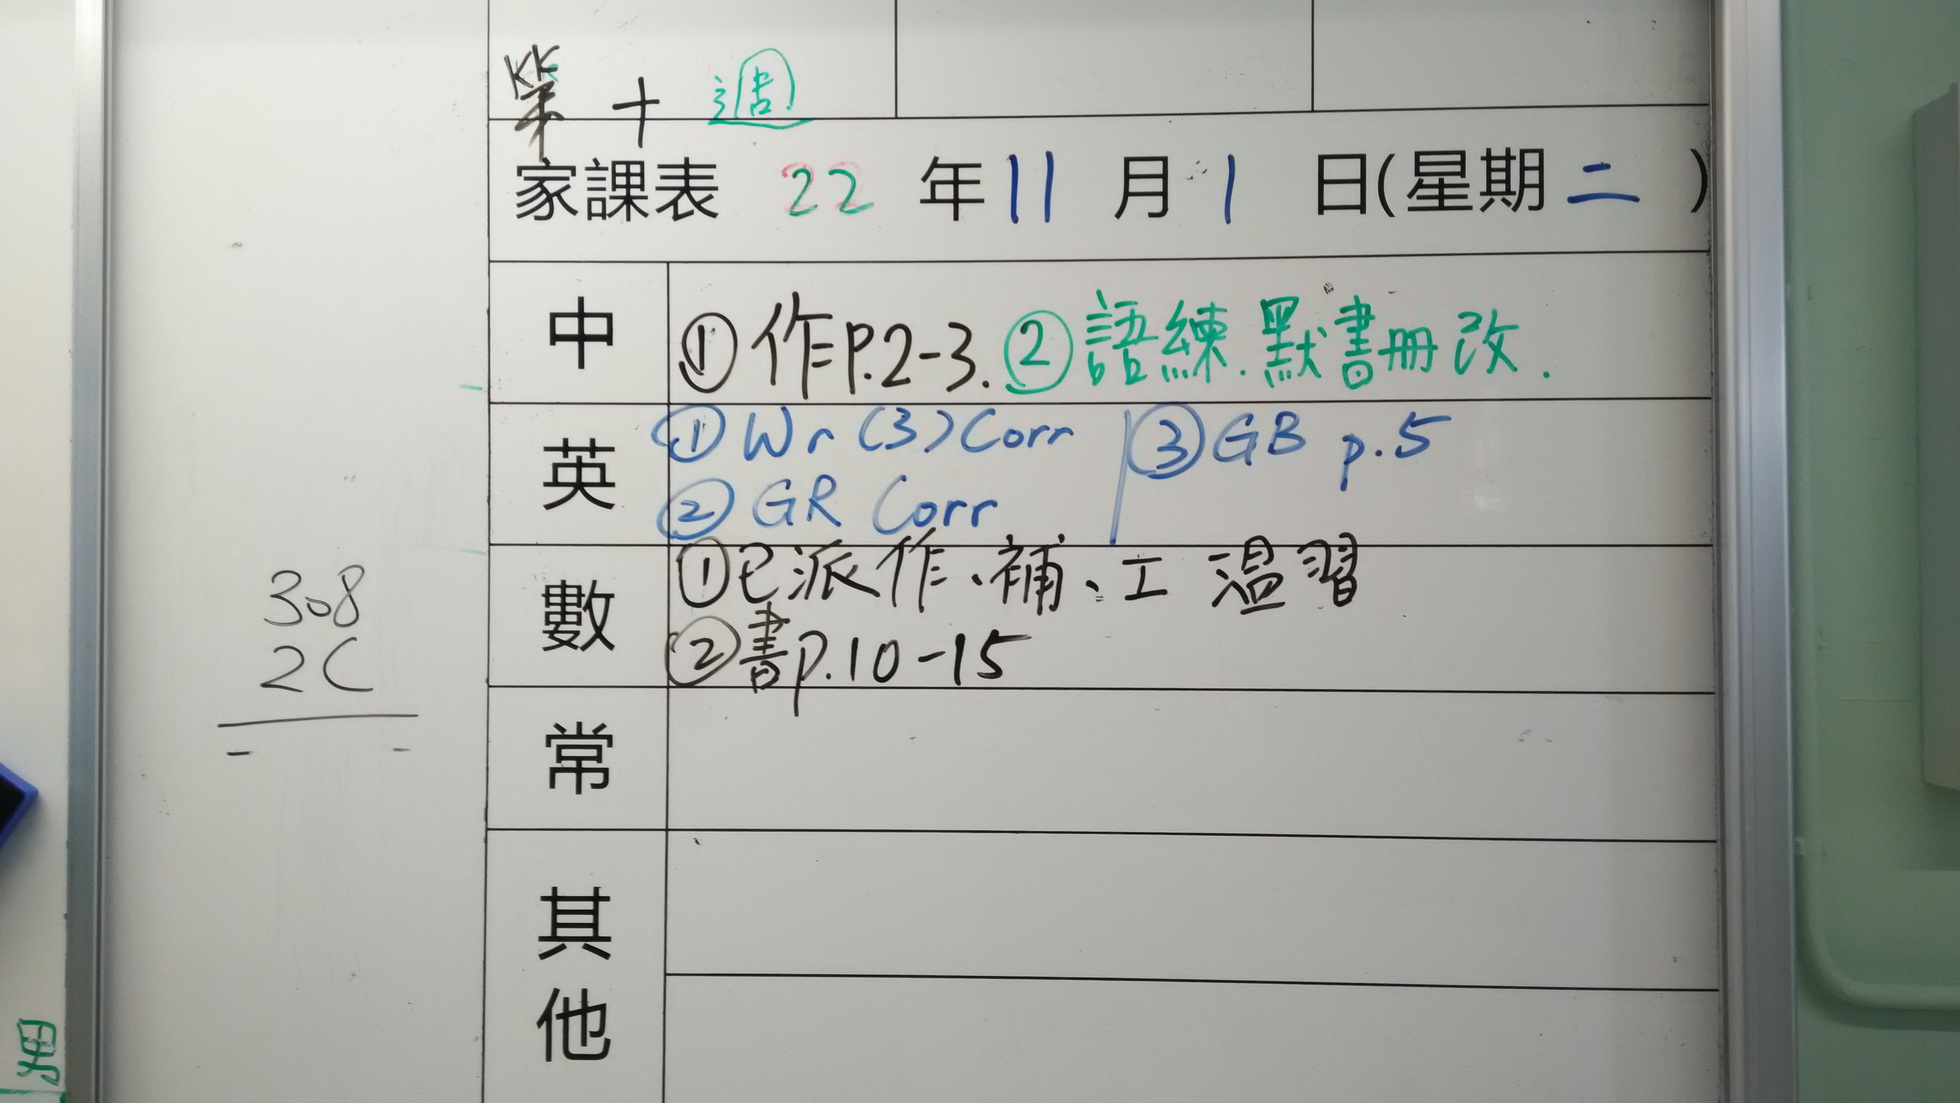 第十週
家課表 22 年 11 月 1 日(星期二)
中 ①作P.2-3. ②語練.默書冊改.
英 ①Wr (3) Corr ③GB p.5
②GR Corr
數 ①已派作、補、工 溫習
②書p.10-15
常
其他
308
2C
男